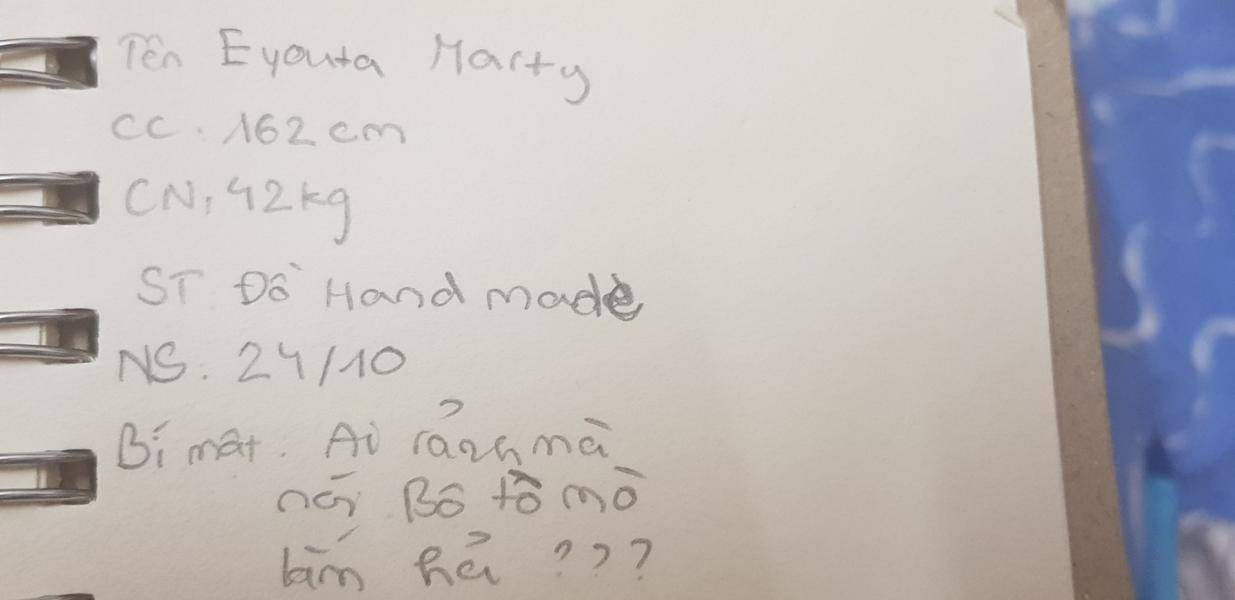 Tên Eyouta Marty
CC. 162 cm
CN, 42kg
ST Đồ Handmade
NS. 24/10
Bí mật. Ai rảnh mà
nói Bộ tò mò
lắm hả ???